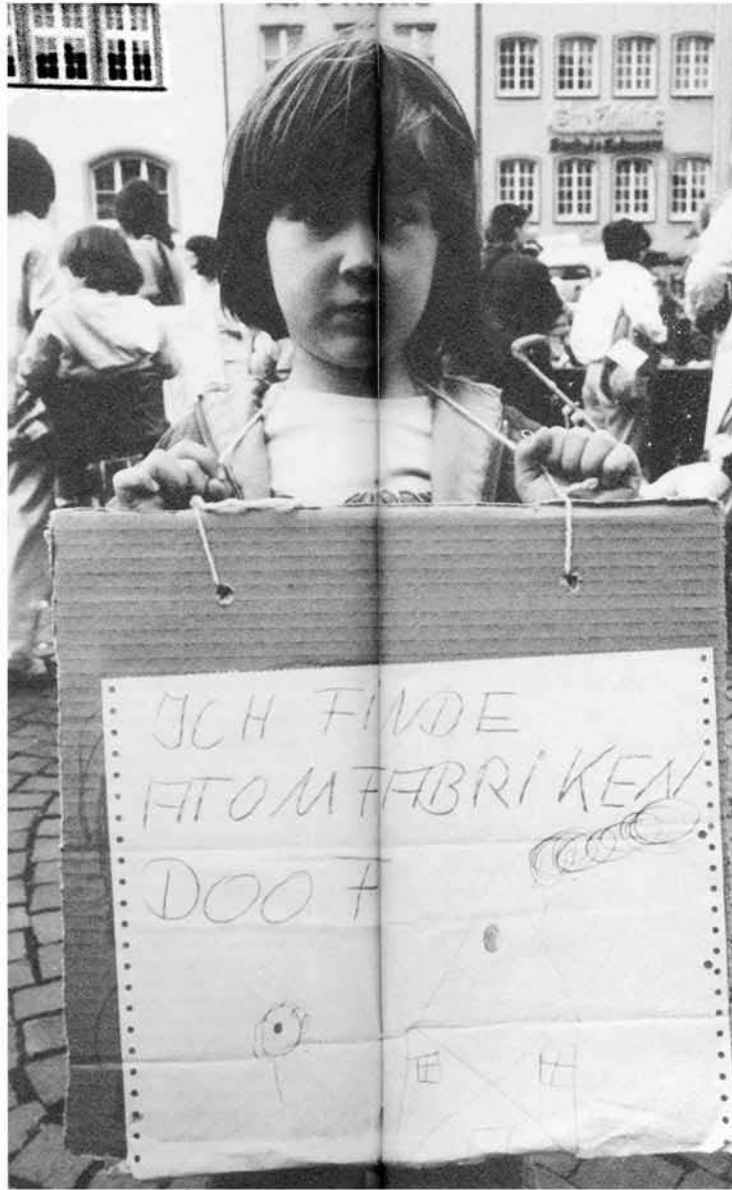 ICH FINDE
ATOMFABRIKEN
DOOF